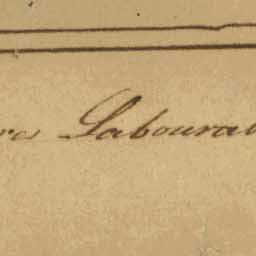 res Laboura